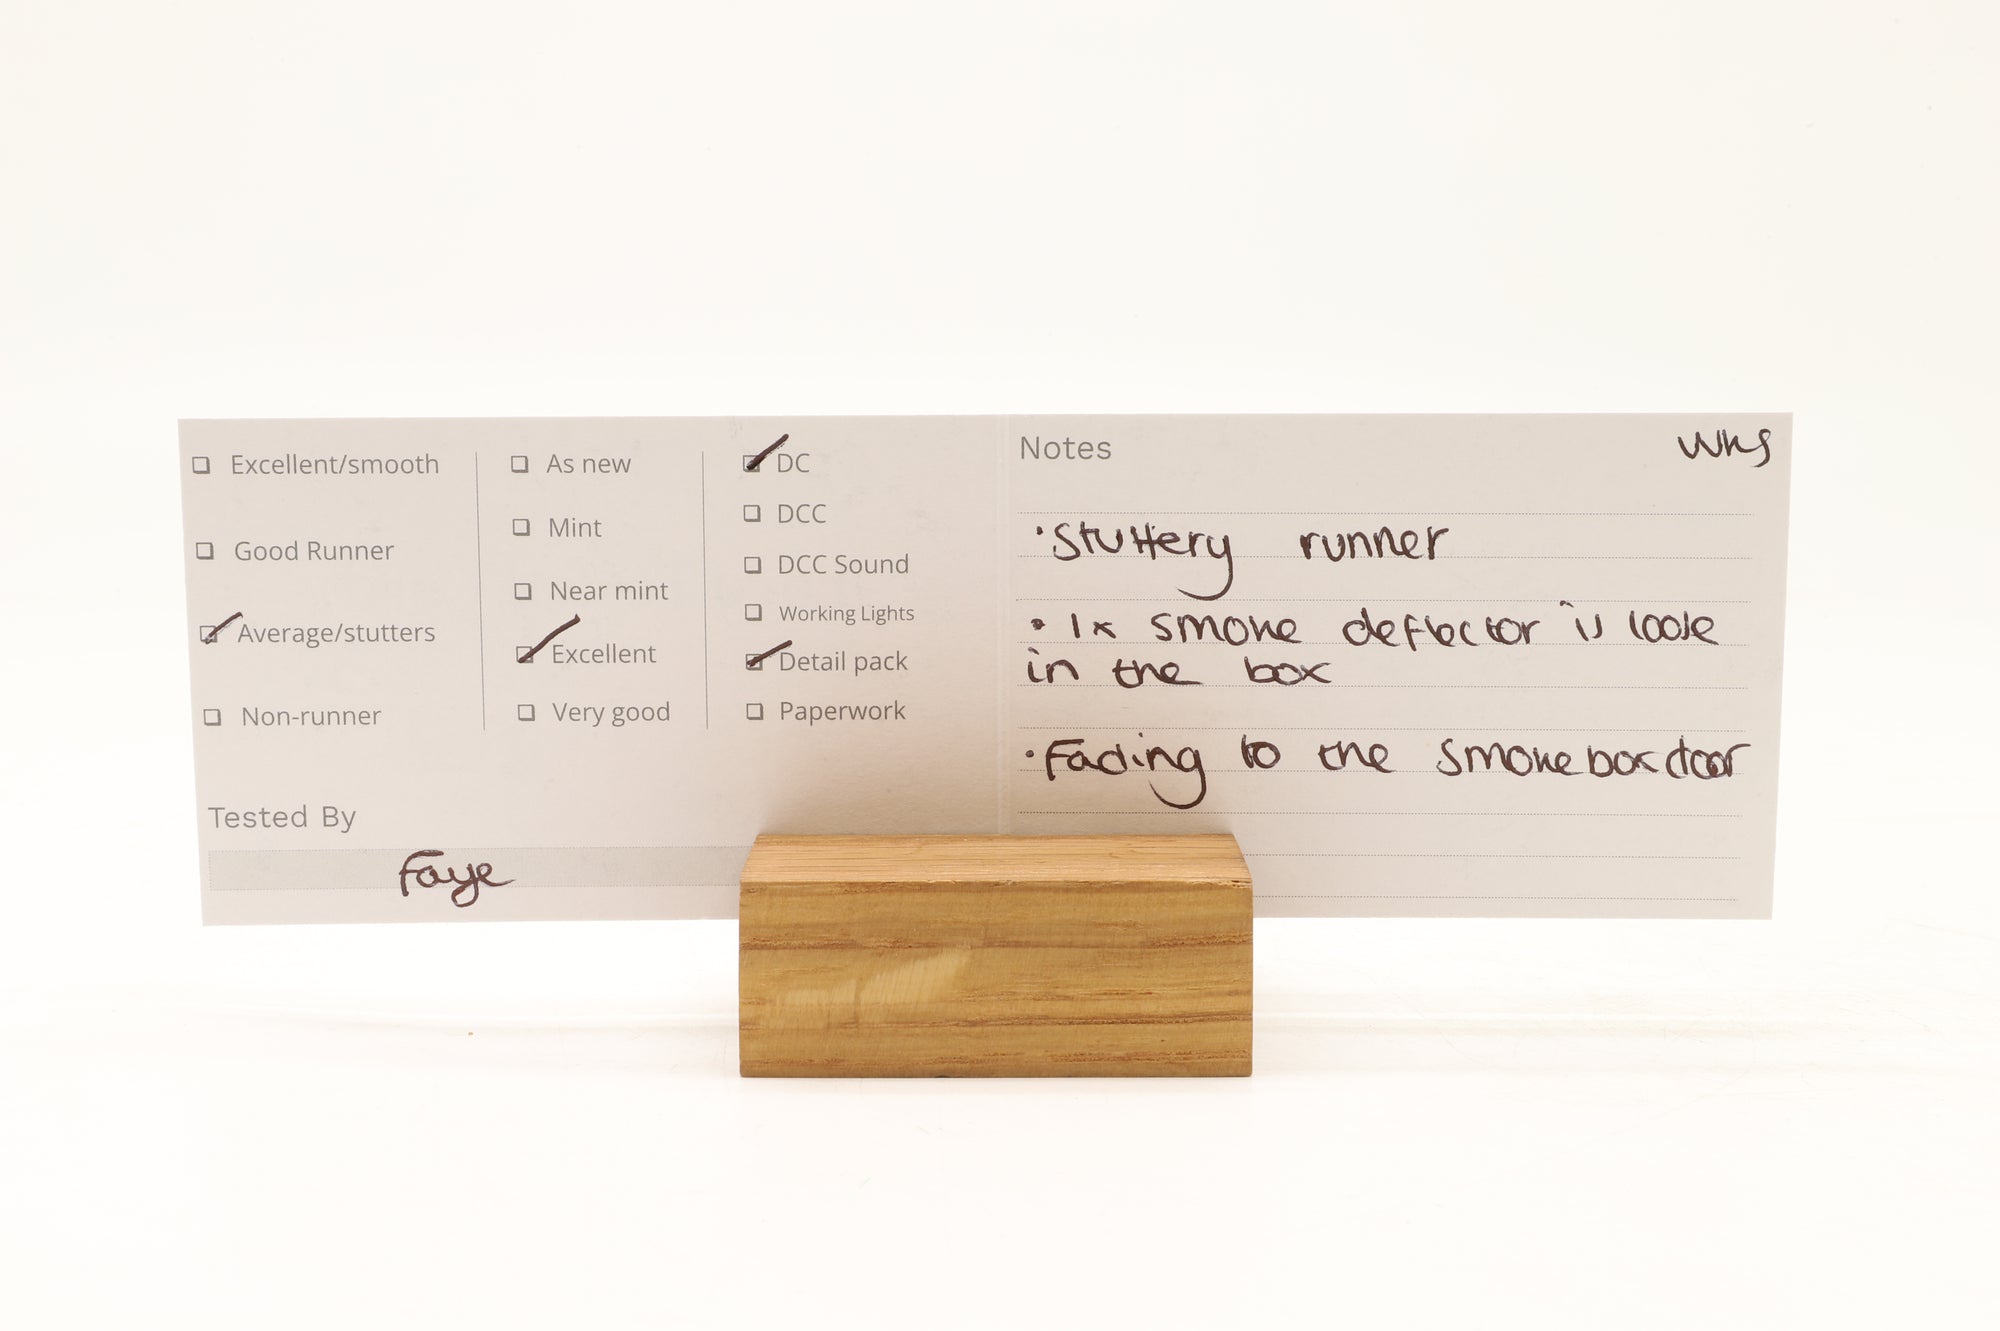 Excellent/smooth
Good Runner
Average/stutters
Non-runner
As new
Mint
Near mint
Excellent
Very good
DC
DCC
DCC Sound
Working Lights
Detail pack
Paperwork
Tested By
Faye
Notes
•Stuttery runner
•1x smoke deflector is loose
in the box
•Fading to the smokebox door